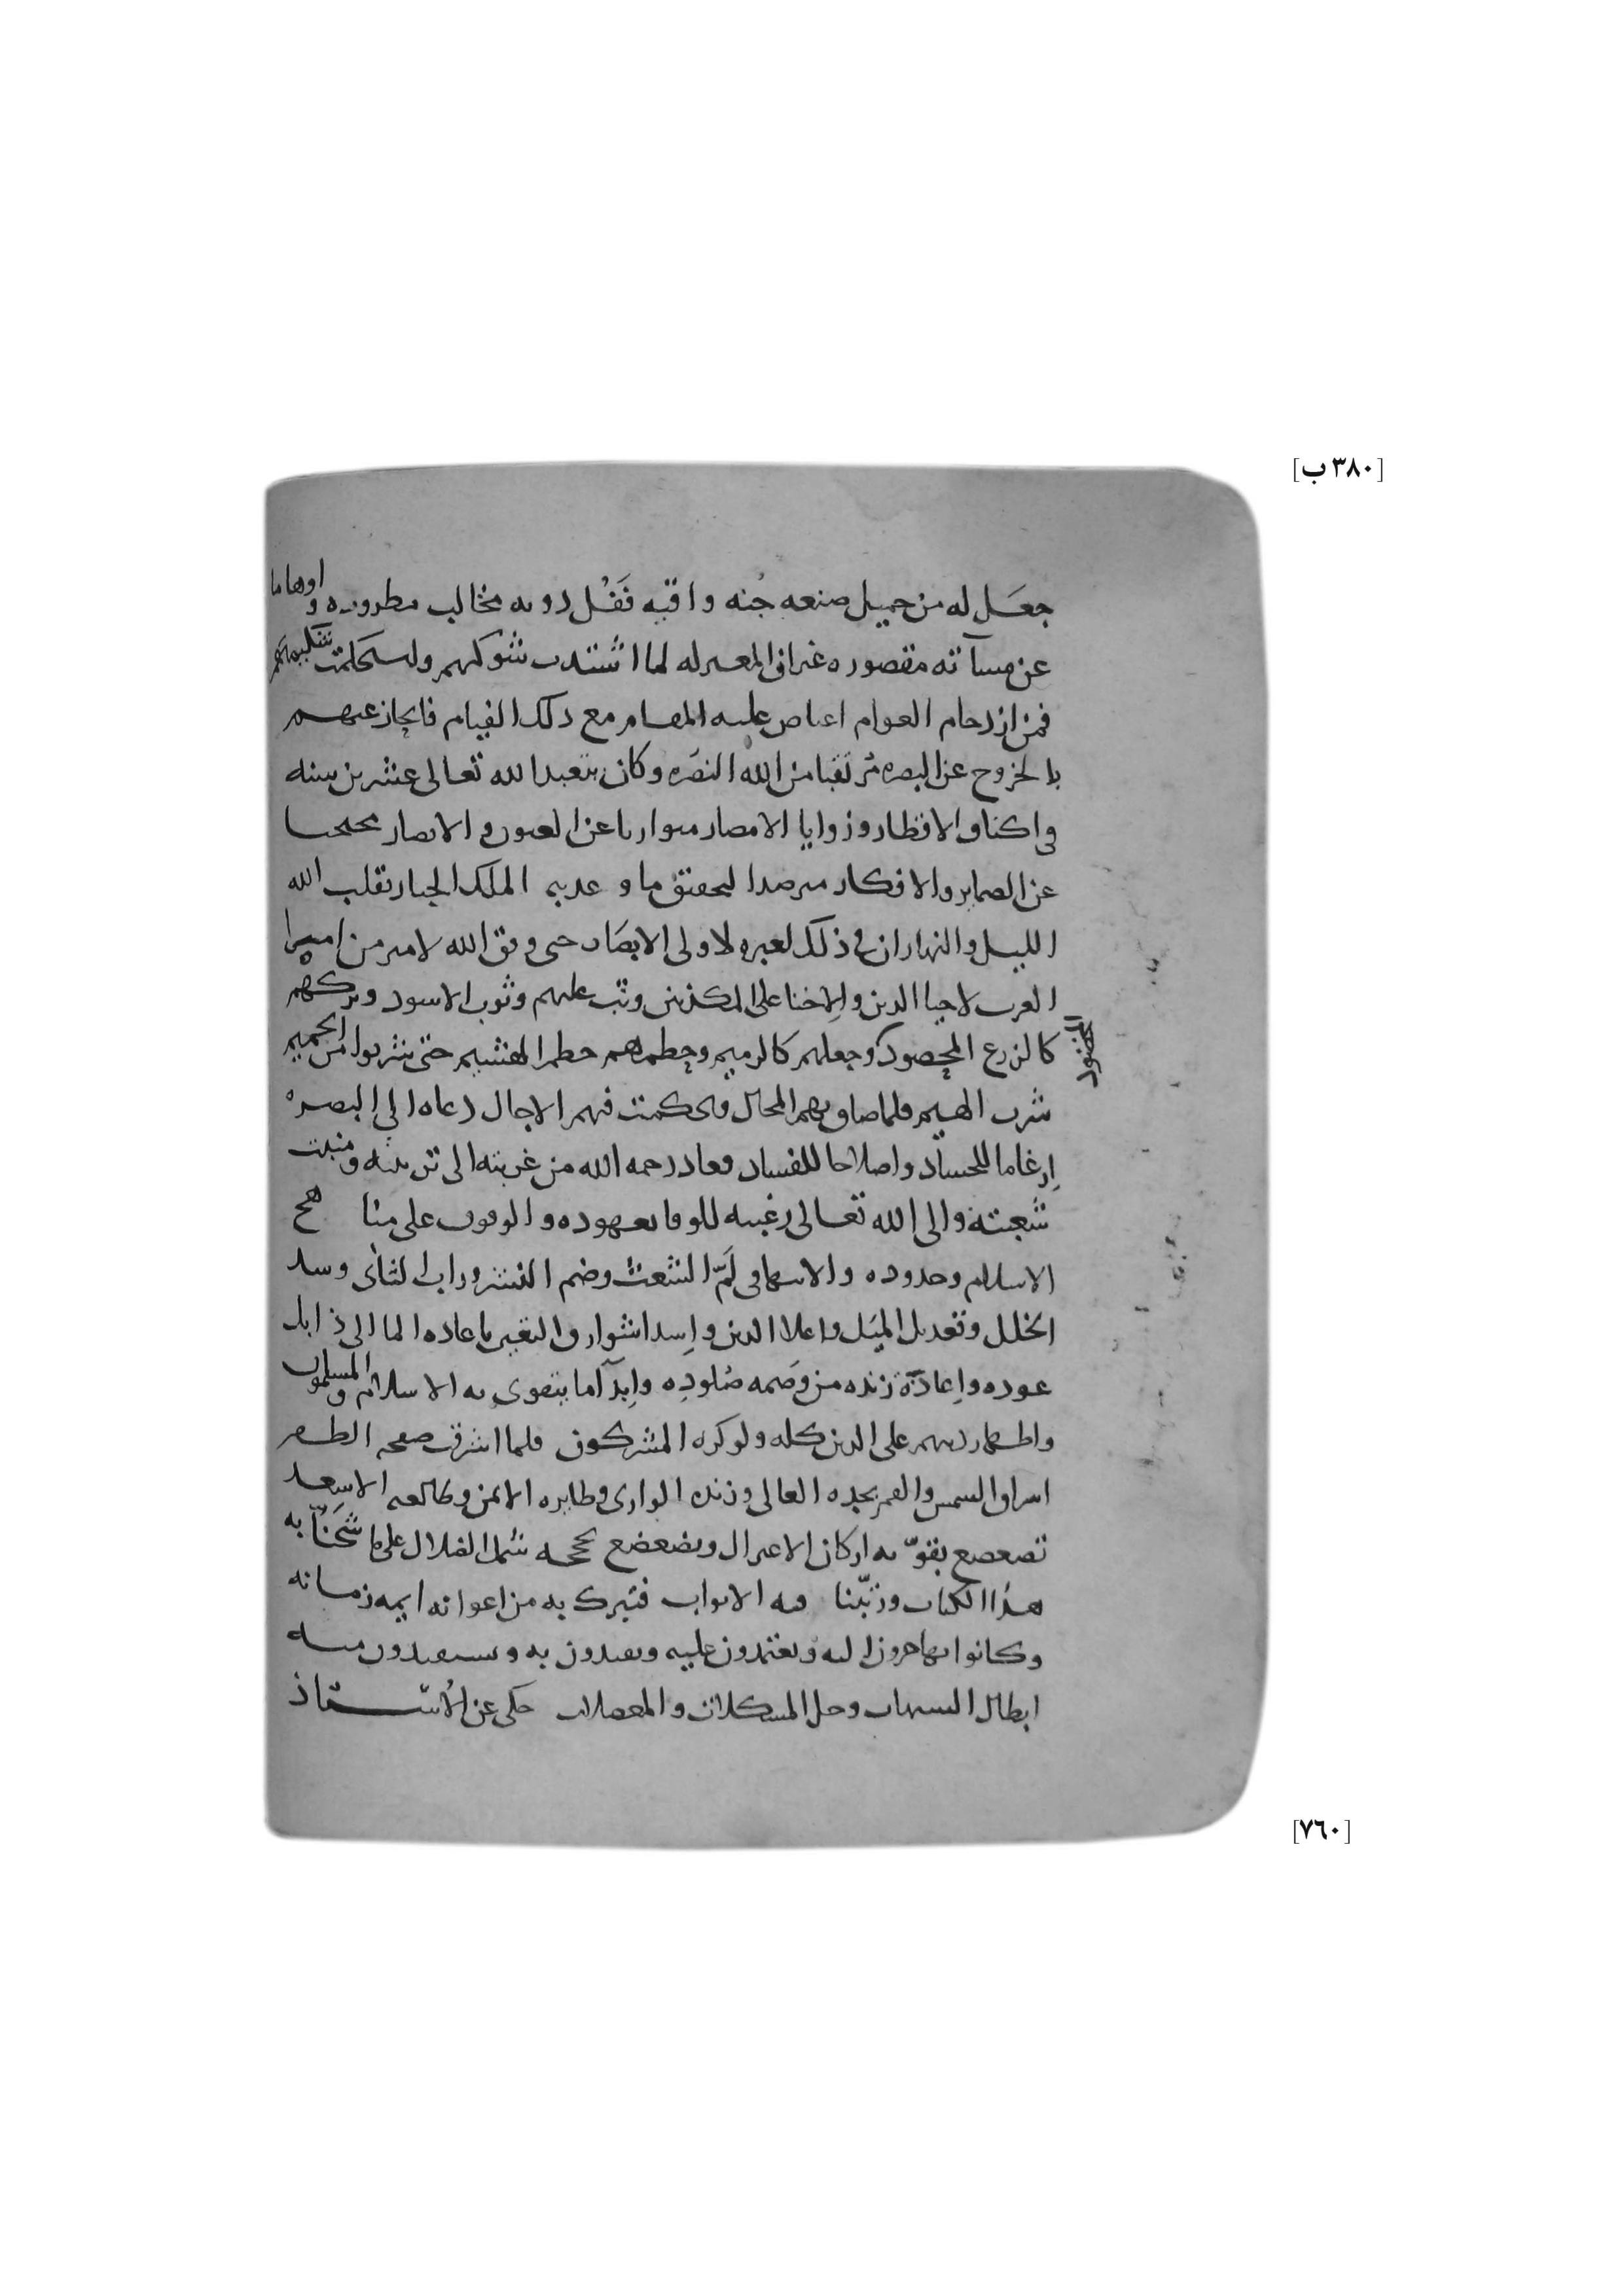 [٣٨٠ ب]
جعَل له من جميل صنعه جُنه واقيه فَفُل دونه مخالب مطروره واوهاما
عن مسآته مقصوره غير ان المعتزله لما اشتدت شوكتهم و
فمن ازدحام العوام اعتاص عليه المقام مع ذلك القيام فانحاز عنهم
بالخروج عن البصره مرتقبا من الله النصره وكان يتعبد الله تعالى عشرين سنه
في اكناف الاقطار وزوايا الامصار متواريا عن العيون والابصار محتجبا
عن الضماير والافكار مترصدا لتحقيق ما وعد به الملك الجبار تقلب الله
الليل والنهار ان في ذلك لعبره لاولى الابصار حتى وفق الله لامير من امرا
العرب لاحيا الدين والاخنا على المكذبين وثب عليهم وثوب الاسود وتركهم
كالزرع المحصود وجعلهم كالرميم وحطمهم حطم الهشيم حتى شربوا من الحميم
المخضود
شرب الهيم فلما ضاق بهم المحال وتحكمت فيهم الاجال دعاه الى البصره
اِرغاما للحسّاد واصلاحا للفساد فعاد رحمه الله من غربته الى تربته ومنبت
شعبته والى الله تعالى رغبته للوفا بعهوده والوقوف على منا هج
الاسلام وحدوده والانتها في لَمّ الشعث وضم النشر وراب الثأى وسد
الخلل وتعديل الميَل واعلا الدين و باعاده الما الى ذابل
عوده واِعادَة زنده من وَصمه صُلوده واِبدآ ما يتقوى به الاسلام والمسلمون
واظهار دينهم على الدين كله ولو كره المشركون فلما اشرقت صفحه الظفر
اشراق الشمس والقمر بجده العالى وزنده الوارى وطايره الايمن وطالعه الاسعد
تضعضع بقوّته اركان الاعتزال وتضعضع بحججه شمل الضلال على ما شَحَنّا به
هذا الكتاب ورتّبنا فيه الابواب فتبرك به من اعوانه ايمه زمانه
وكانوا يهاجرون اليه ويعتمدون عليه ويقتدون به ويستفيدون منه
ابطال الشبهات وحل المشكلات والمعضلات حكى عن الاُستاذ
[٧٦٠]